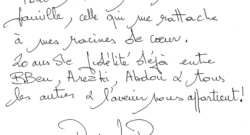 famille, celle qui me rattache
à mes racines de cœur.
20 ans de fidélité déjà entre
BBen, Arezki, Abdou & tous
les autres & l'avenir nous appartient!